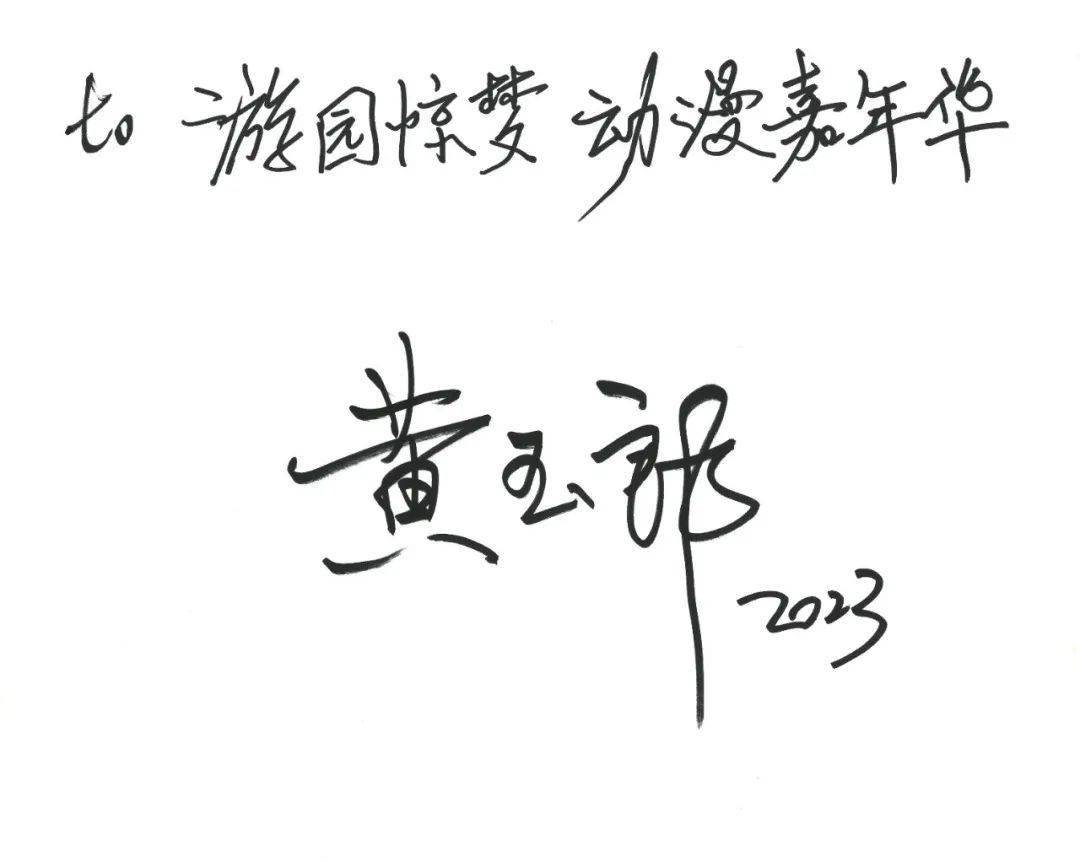 to 游园惊梦 动漫嘉年华
黄玉郎
2023